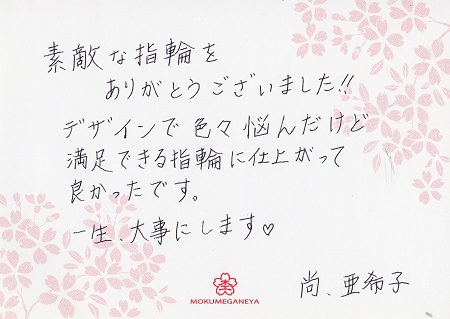 素敵な指輪を
ありがとうございました!!
デザインで色々悩んだけど
満足できる指輪に仕上がって
良かったです。
一生、大事にします♡
尚、亜希子
MOKUMEGANEYA